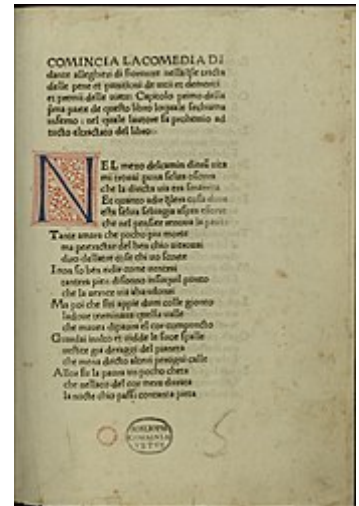 COMINCIA LACOMEDIA DI
dante alleghieri di fiorenze nella q̄le tracta
delle pene et punitioni de uitii et demeriti
et premii delle uirtu: Capitolo primo della
p̄ma parte de questo libro loquale sechiama
inferno : nel quale lautore fa prohemio ad
tucto eltractato del libro:
NEL mezo delcamin di nr̄a uita
mi trouai p una selua oscura
che la diricta uia era smarrita
Et quanto adir q̄lera cosa dura
esta selua seluagia aspra eforte
che nel pensier renoua la paura
Tante amara che pocho piu morte
ma pertractar del ben chio uitrouai
diro dellaltre cose chi uo scorte
I non so ben ridir come uentrai
tantera pien disonno insuquel punto
che la uerace uia abandonai
Ma poi che fui appie dum colle gionto
ladoue terminaua quella ualle
che mauea dipaura el cor compuncto
Guardai inalto et uidde le suoe spalle
uestite gia deraggi del pianeta
che mena dricto altrui perogni calle
Allor fu la paura un pocho cheta
che nellaco del cor mera durata
la nocte chio passai contanta pieta